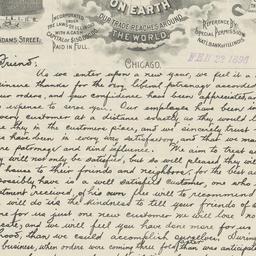 ON EARTH
INCORPORATED
UNDER
THE LAWS OF ILLINOIS
WITH A CASH
CAPITAL OF $150,000.00
PAID IN FULL.
OUR TRADE REACHES AROUND
THE WORLD
REFERENCE BY
SPECIAL PERMISSION
NAT'L BANK OF ILLINOIS
ADAMS STREET.
Friend:
CHICAGO,
FEB 22 1896
As we enter upon a new year, we feel it a
sincere thanks for the very liberal patronage accorded
our orders, and your confidence has been appreciated, a
expense to serve you. Our employees have been
every customer at a distance exactly as they would l
re they in the customers place, and we sincerely trust
s have been in every way satisfactory, and that we ma
re patronage and kind influence. We aim to treat
y will not only be satisfied, but so well pleased they wi
house to their friends and neighbors, for the best a
possibly have is a well satisfied customer, one who
treatment received, of his own free will to recommend
will do us the kindness to tell your friends of
re for us just one new customer we will love no
sale, and we will feel you have done more for us
good, than we could accomplish ourselves. During
business, when orders were coming three fold than was anticipate